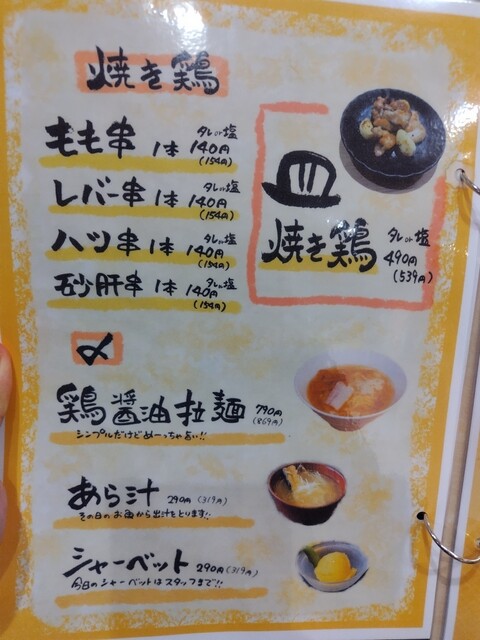 焼き鶏
もも串 1本 タレor塩 140円 (154円)
レバー串 1本 タレor塩 140円 (154円)
ハツ串 1本 タレor塩 140円 (154円)
砂肝串 1本 タレor塩 140円 (154円)
皿
焼き鶏 タレor塩 490円 (539円)
〆
鶏醤油拉麺 790円 (869円)
シンプルだけどめーっちゃ旨い!!
あら汁 290円 (319円)
その日のお魚から出汁をとります!!
シャーベット 290円 (319円)
今日のシャーベットはスタッフまで!!